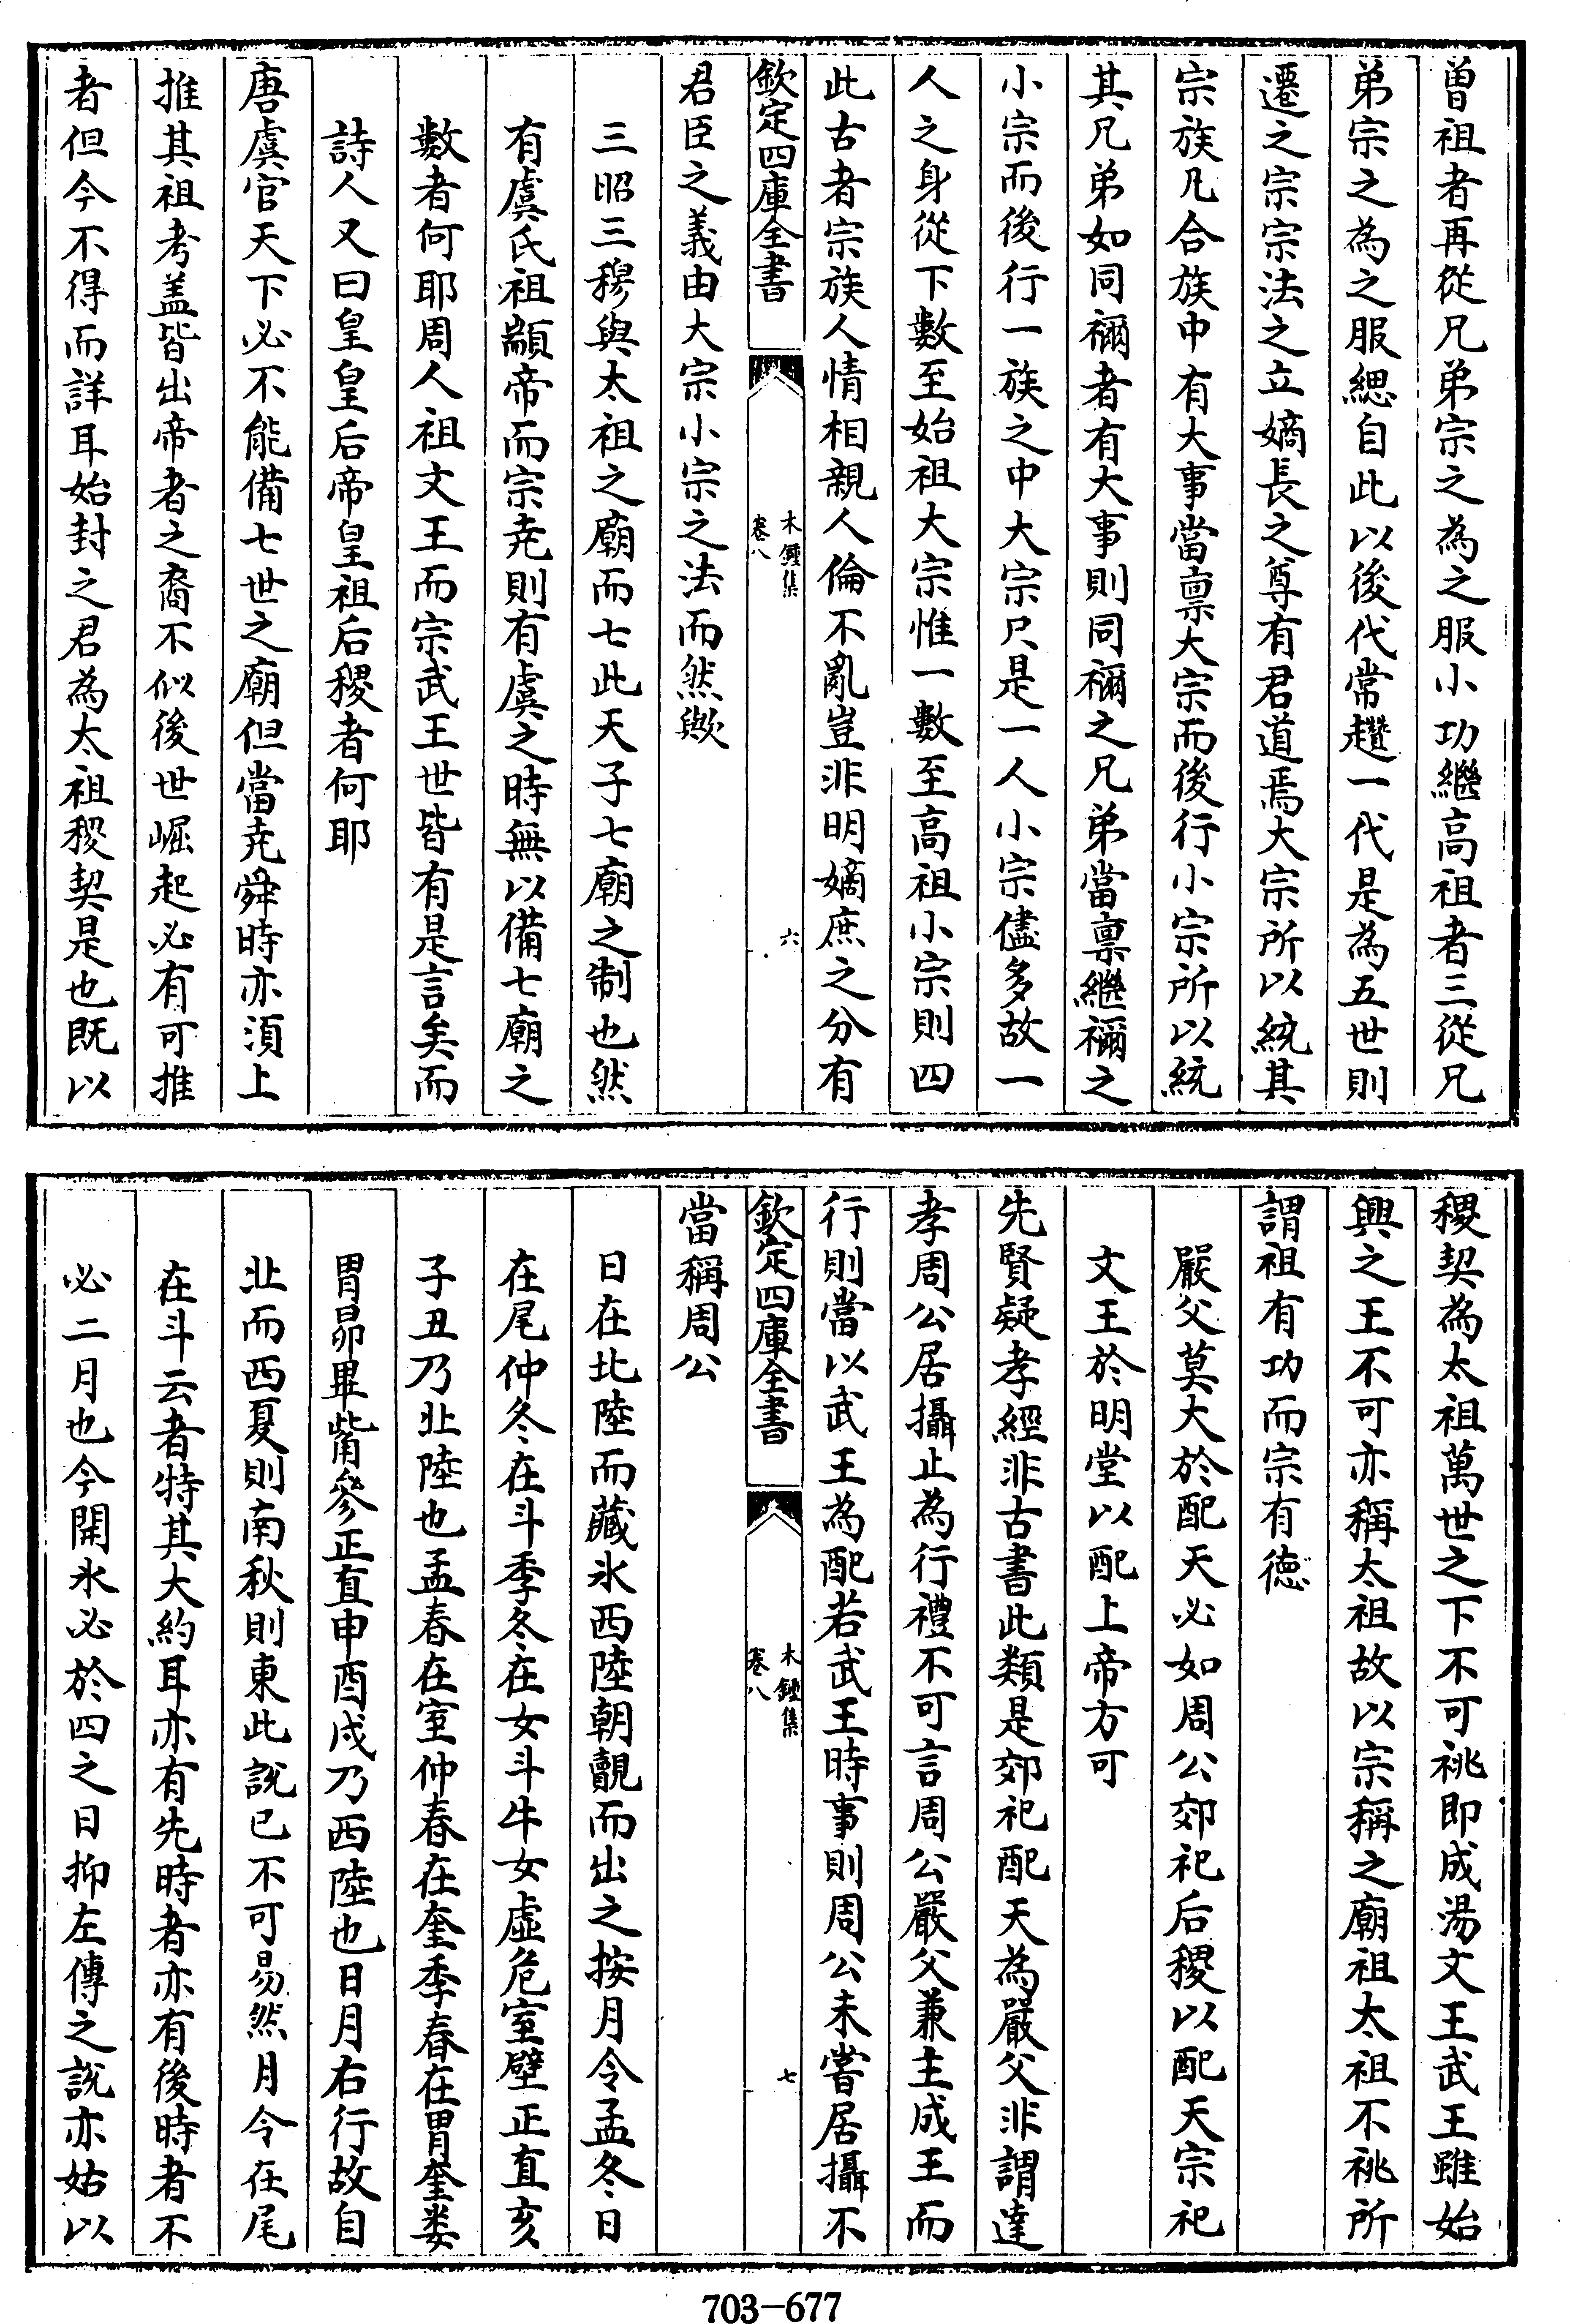 曽祖者再從兄弟宗之為之服小功繼高祖者三從兄
弟宗之為之服緦自此以後代常趲一代是為五世則
遷之宗宗法之立嫡長之尊有君道焉大宗所以統其
宗族凡合族中有大事當禀大宗而後行小宗所以統
其兄弟如同禰者有大事則同禰之兄弟當禀繼禰之
小宗而後行一族之中大宗只是一人小宗儘多故一
人之身從下數至始祖大宗惟一數至高祖小宗則四
此古者宗族人情相親人倫不亂豈非明嫡庶之分有
欽定四庫全書
木鍾集
卷八
六
君臣之義由大宗小宗之法而然歟
三昭三穆與太祖之廟而七此天子七廟之制也然
有虞氏祖顓帝而宗堯則有虞之時無以備七廟之
數者何耶周人祖文王而宗武王世皆有是言矣而
詩人又曰皇皇后帝皇祖后稷者何耶
唐虞官天下必不能備七世之廟但當堯舜時亦須上
推其祖考盖皆出帝者之裔不似後世崛起必有可推
者但今不得而詳耳始封之君為太祖稷契是也既以
稷契為太祖萬世之下不可祧即成湯文王武王雖始
興之王不可亦稱太祖故以宗稱之廟祖太祖不祧所
謂祖有功而宗有德
嚴父莫大於配天必如周公郊祀后稷以配天宗祀
文王於明堂以配上帝方可
先賢疑孝經非古書此類是郊祀配天為嚴父非謂達
孝周公居攝止為行禮不可言周公嚴父兼主成王而
行則當以武王為配若武王時事則周公未嘗居攝不
欽定四庫全書
木鍾集
卷八
七
當稱周公
日在北陸而藏氷西陸朝覿而出之按月令孟冬日
在尾仲冬在斗季冬在女斗牛女虛危室壁正直亥
子丑乃北陸也孟春在室仲春在奎季春在胃奎婁
胃昴畢觜參正直申酉戌乃西陸也日月右行故自
北而西夏則南秋則東此說已不可易然月令在尾
在斗云者特其大約耳亦有先時者亦有後時者不
必二月也今開氷必於四之日抑左傳之說亦姑以
703-677